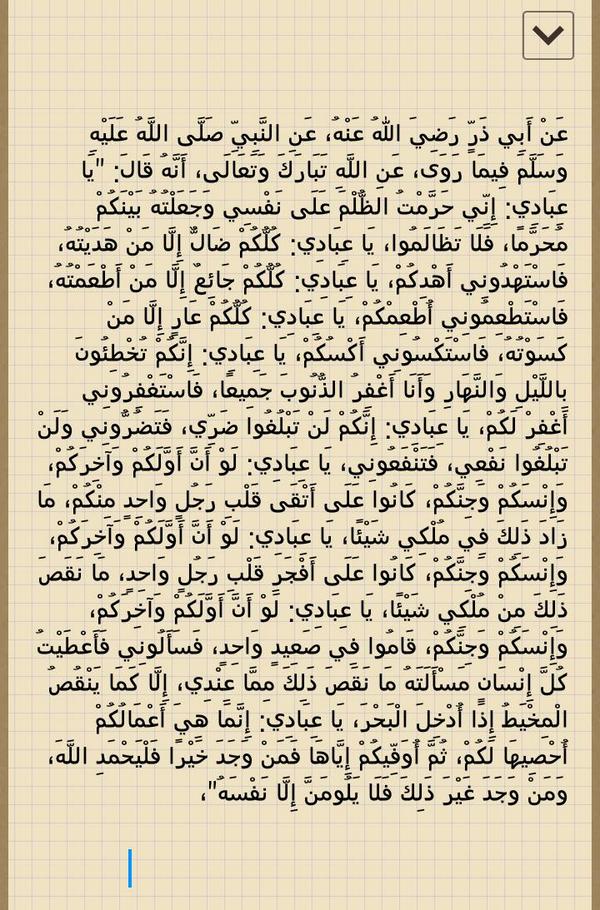 عَنْ أَبِي ذَرٍّ رَضِيَ اللَّهُ عَنْهُ، عَنِ النَّبِيِّ صَلَّى اللَّهُ عَلَيْهِ
وَسَلَّمَ فِيمَا رَوَى، عَنِ اللَّهِ تَبَارَكَ وَتَعَالَى، أَنَّهُ قَالَ: "يَا
عِبَادِي: إِنِّي حَرَّمْتُ الظُّلْمَ عَلَى نَفْسِي وَجَعَلْتُهُ بَيْنَكُمْ
مُحَرَّمًا، فَلَا تَظَالَمُوا، يَا عِبَادِي: كُلُّكُمْ ضَالٌّ إِلَّا مَنْ هَدَيْتُهُ،
فَاسْتَهْدُونِي أَهْدِكُمْ، يَا عِبَادِي: كُلُّكُمْ جَائِعٌ إِلَّا مَنْ أَطْعَمْتُهُ،
فَاسْتَطْعِمُونِي أُطْعِمْكُمْ، يَا عِبَادِي: كُلُّكُمْ عَارٍ إِلَّا مَنْ
كَسَوْتُهُ، فَاسْتَكْسُونِي أَكْسُكُمْ، يَا عِبَادِي: إِنَّكُمْ تُخْطِئُونَ
بِاللَّيْلِ وَالنَّهَارِ وَأَنَا أَغْفِرُ الذُّنُوبَ جَمِيعًا، فَاسْتَغْفِرُونِي
أَغْفِرْ لَكُمْ، يَا عِبَادِي: إِنَّكُمْ لَنْ تَبْلُغُوا ضَرِّي، فَتَضُرُّونِي وَلَنْ
تَبْلُغُوا نَفْعِي، فَتَنْفَعُونِي، يَا عِبَادِي: لَوْ أَنَّ أَوَّلَكُمْ وَآخِرَكُمْ،
وَإِنْسَكُمْ وَجِنَّكُمْ، كَانُوا عَلَى أَتْقَى قَلْبِ رَجُلٍ وَاحِدٍ مِنْكُمْ، مَا
زَادَ ذَلِكَ فِي مُلْكِي شَيْئًا، يَا عِبَادِي: لَوْ أَنَّ أَوَّلَكُمْ وَآخِرَكُمْ،
وَإِنْسَكُمْ وَجِنَّكُمْ، كَانُوا عَلَى أَفْجَرِ قَلْبِ رَجُلٍ وَاحِدٍ، مَا نَقَصَ
ذَلِكَ مِنْ مُلْكِي شَيْئًا، يَا عِبَادِي: لَوْ أَنَّ أَوَّلَكُمْ وَآخِرَكُمْ،
وَإِنْسَكُمْ وَجِنَّكُمْ، قَامُوا فِي صَعِيدٍ وَاحِدٍ، فَسَأَلُونِي فَأَعْطَيْتُ
كُلَّ إِنْسَانٍ مَسْأَلَتَهُ مَا نَقَصَ ذَلِكَ مِمَّا عِنْدِي، إِلَّا كَمَا يَنْقُصُ
الْمِخْيَطُ إِذَا أُدْخِلَ الْبَحْرَ، يَا عِبَادِي: إِنَّمَا هِيَ أَعْمَالُكُمْ
أُحْصِيهَا لَكُمْ، ثُمَّ أُوَفِّيكُمْ إِيَّاهَا فَمَنْ وَجَدَ خَيْرًا فَلْيَحْمَدِ اللَّهَ،
وَمَنْ وَجَدَ غَيْرَ ذَلِكَ فَلَا يَلُومَنَّ إِلَّا نَفْسَهُ"،